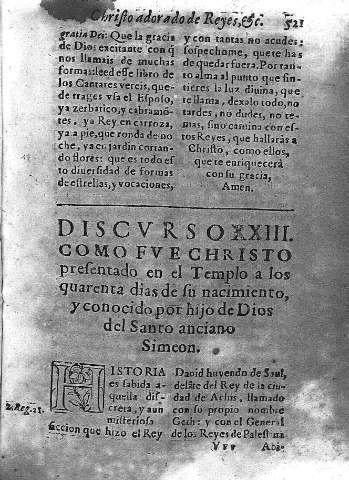 Christo adorado de Reyes, &c. 521
gratia Dei: Que la gracia
de Dios excitante con q̃
nos llamais de muchas
formas: leed esse libro de
los Cantares vereis, que
de trages vsa el Esposo,
ya zerbatico, y cabramõ
tes, ya Rey en carroza,
ya a pie, que ronda de no
che, ya en jardin cortan
do flores: que es todo es
to diuersidad de formas
de estrellas, y vocaciones,
y con tantas no acudes:
sospechome, que te has
de quedar fuera. Por tan
to alma al punto que sin
tieres la luz diuina, que
te llama, dexalo todo, no
tardes, no dudes, no te-
mas, sino camina con es-
tos Reyes, que hallarás a
Christo, como ellos,
que te enriquecerá
con su gracia,
Amen.
DISCVRSO XXIII.
COMO FVE CHRISTO
presentado en el Templo a los
quarenta dias de su nacimiento,
y conocido por hijo de Dios
del Santo anciano
Simeon.
HISTORIA
es sabida a-
quella dis-
creta, y aun
misteriosa
accion que hizo el Rey
2. Reg. 21.
Dauid huyendo de Saul,
delãte del Rey de la ciu-
dad de Achis, llamado
con su propio nombre
Geth: y con el General
de los Reyes de Palestina
Vvv Abi-